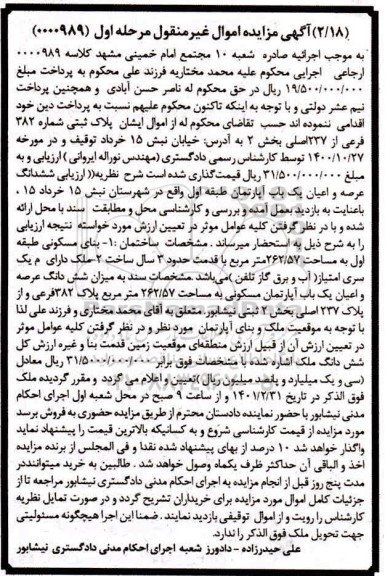 (۲/۱۸) آگهی مزایده اموال غیرمنقول مرحله اول (۰۰۰۰۹۸۹)
به موجب اجرائیه صادره شعبه ۱۰ مجتمع امام خمینی مشهد کلاسه ۰۰۰۰۹۸۹
ارجاعی اجرایی محکوم علیه محمد مختاریه فرزند علی محکوم به پرداخت مبلغ
۱۹/۵۰۰/۰۰۰/۰۰۰ ریال در حق محکوم له ناصر حسن آبادی و همچنین پرداخت
نیم عشر دولتی و با توجه به اینکه تاکنون محکوم علیهم نسبت به پرداخت دین خود
اقدامی ننموده اند حسب تقاضای محکوم له از اموال ایشان پلاک ثبتی شماره ۳۸۲
فرعی از ۲۳۷اصلی بخش ۲ به آدرس: خیابان نبش ۱۵ خرداد توقیف و در مورخه
۱۴۰۰/۱۰/۲۷ توسط کارشناس رسمی دادگستری (مهندس نوراله ایروانی) ارزیابی و به
مبلغ ۳۱/۵۰۰/۰۰۰/۰۰۰ ریال قیمت‌گذاری شده است شرح نظریه(( ارزیابی ششدانگ
عرصه و اعیان یک باب آپارتمان طبقه اول واقع در شهرستان نبش ۱۵ خرداد ۱۵ ،
باعنایت به بازدید بعمل آمده و بررسی و کارشناسی محل و مطابقت سند با محل ارائه
شده و با در نظر گرفتن کلیه عوامل موثر در تعیین ارزش مورد خواسته نتیجه ارزیابی
را به شرح ذیل به استحضار میرساند . مشخصات ساختمان :۱- بنای مسکونی طبقه
اول به مساحت ۲۶۲/۵۷متر مربع با قدمت حدود ۳ سال ساخت ۲-ملک دارای م یک
سری امتیاز( آب و برق گاز تلفن )می‌باشد .مشخصات سند به میزان شش دانگ عرصه
و اعیان یک باب آپارتمان مسکونی به مساحت ۲۶۲/۵۷ متر مربع پلاک ۳۸۲فرعی و از
پلاک ۲۳۷ اصلی بخش ۲ ثبتی نیشابور متعلق به آقای محمد مختاری و فرزند علی لذا
با توجه به موقعیت ملک و بنای آپارتمان مورد نظر و در نظر گرفتن کلیه عوامل موثر
در تعیین ارزش آن از قبیل ارزش منطقه‌ای موقعیت زمین قدمت بنا و غیره ارزش کل
شش دانگ ملک اشاره شده با مشخصات فوق برابر ۳۱/۵۰۰/۰۰۰/۰۰۰ ریال معادل
(سی و یک میلیارد و پانصد میلیون ریال )تعیین و اعلام می گردد و مقرر گردیده ملک
فوق الذکر در تاریخ ۱۴۰۱/۲/۳۱ و از ساعت ۹ صبح در محل شعبه اول اجرای احکام
مدنی نیشابور با حضور نماینده دادستان محترم از طریق مزایده حضوری به فروش برسد
مورد مزایده از قیمت کارشناسی شروع و به کسانیکه بالاترین قیمت را پیشنهاد نماید
واگذار خواهد شد ۱۰ درصد از بهای پیشنهاد شده نقدا و فی المجلس از برنده مزایده
اخذ و الباقی آن حداکثر ظرف یکماه وصول خواهد شد . طالبین به خرید میتوانند در
مدت پنج روز قبل از انجام مزایده به اجرای احکام مدنی دادگستری نیشابور مراجعه تا از
جزئیات کامل اموال مورد مزایده برای خریداران تشریح گردد و در صورت تمایل نظریه
کارشناس را رویت و از اموال توقیفی بازدید نمایند . ضمنا این اجرا هیچگونه مسئولیتی
جهت تحویل ملک فوق الذکر را ندارد.
علی حیدرزاده – دادورز شعبه اجرای احکام مدنی دادگستری نیشابور